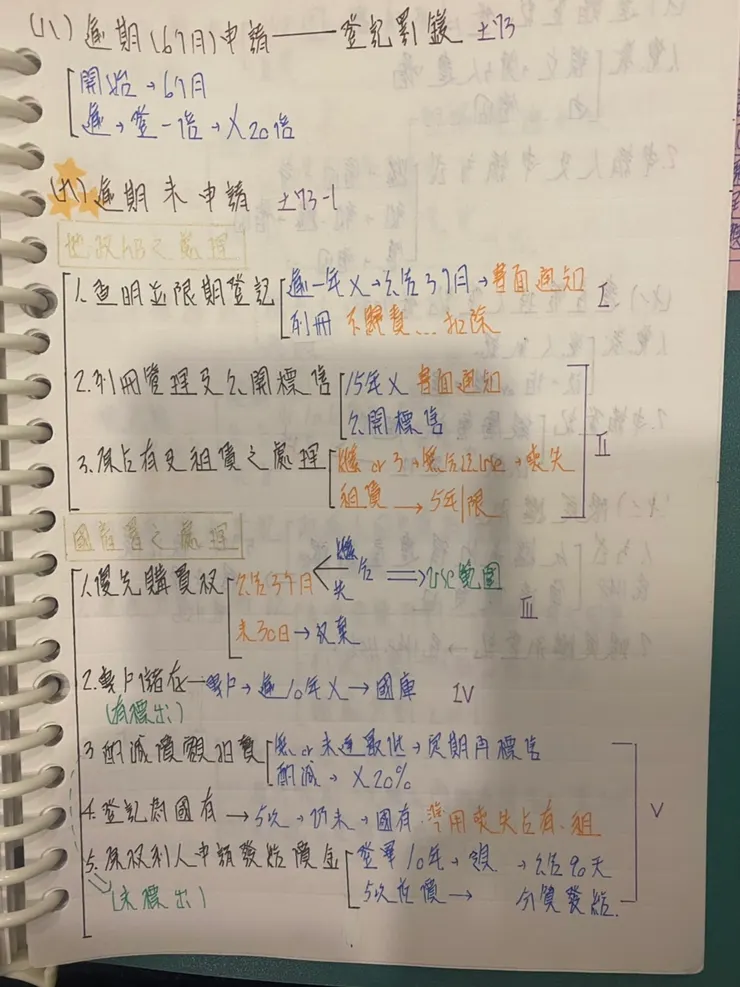 (八) 逾期(6个月)申請——登記罰鍰 土73
開始→6个月
逾→登一倍→X20倍
(九) 逾期未申請 土73-1
地政機關之處理
1.查明並限期登記 逾一年X→公告3个月→書面通知 I
列冊 不歸責...扣除
2.列冊管理及公開標售 15年X 書面通知
公開標售 II
3.原占有及租賃之處理 or 3→無合法use→喪失
租賃→5年限
國產署之處理
1.優先購買权 公告3个月 use範圍 III
未30日→放棄
2.專戶儲存—專戶→逾10年X→國庫 IV
(有標出)
3.酌減價額拍賣 無or未達最低→定期再標售
酌減→X20% V
4.登記為國有→5次→仍未→國有.準用喪失占有.租
5.原权利人申請發給價金 登畢10年→領→公告90天
(未標出) 5次底價→ 分算發給.